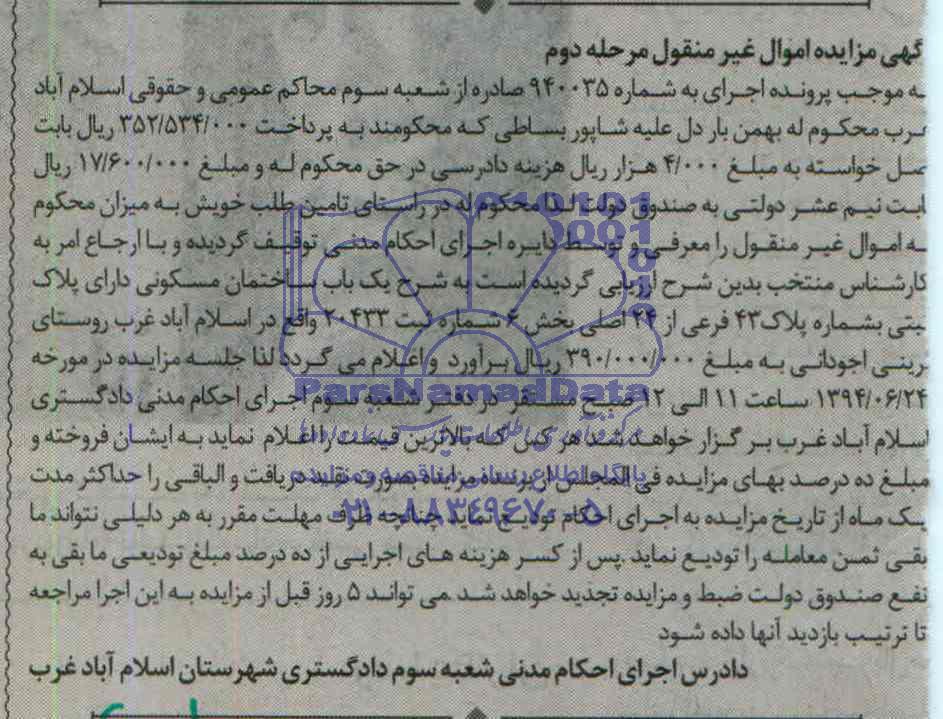 گهی مزایده اموال غیر منقول مرحله دوم
به موجب پرونده اجرای به شماره ۹۴۰۰۳۵ صادره از شعبه سوم محاکم عمومی و حقوقی اسلام آباد
غرب محکوم له بهمن بار دل علیه شاپور بساطی که محکومند به پرداخت ۳۵۲/۵۳۴/۰۰۰ ریال بابت
صل خواسته به مبلغ ۴/۰۰۰ هزار ریال هزینه دادرسی در حق محکوم له و مبلغ ۱۷/۶۰۰/۰۰۰ ریال
ابت نیم عشر دولتی به صندوق دولت لذا محکوم له در راستای تامین طلب خویش به میزان محکوم
به اموال غیر منقول را معرفی و توسط دایره اجرای احکام مدنی توقیف گردیده و با ارجاع امر به
کارشناس منتخب بدین شرح ارزیابی گردیده است به شرح یک باب ساختمان مسکونی دارای پلاک
ثبتی بشماره پلاک ۴۳ فرعی از ۲۴ اصلی بخش ۶ شماره ثبت ۲۰۴۳۳ واقع در اسلام آباد غرب روستای
زینی اجودانی به مبلغ ۳۹۰/۰۰۰/۰۰۰ ریال برآورد و اعلام می گردد لذا جلسه مزایده در مورخه
۱۳۹۴/۰۶/۲۴ ساعت ۱۱ الی ۱۲ صبح مستقر در دفتر شعبه سوم اجرای احکام مدنی دادگستری
اسلام آباد غرب بر گزار خواهد شد هر کس که بالاترین قیمت را اعلام نماید به ایشان فروخته و
مبلغ ده درصد بهای مزایده فی المجلس از برنده مزایده بصورت نقد دریافت و الباقی را حداکثر مدت
یک ماه از تاریخ مزایده به اجرای احکام تودیع نماید چنانچه ظرف مهلت مقرر به هر دلیلی نتواند ما
بقی ثمن معامله را تودیع نماید .پس از کسر هزینه های اجرایی از ده درصد مبلغ تودیعی ما بقی به
نفع صندوق دولت ضبط و مزایده تجدید خواهد شد .می تواند ۵ روز قبل از مزایده به این اجرا مراجعه
تا ترتیب بازدید آنها داده شود
دادرس اجرای احکام مدنی شعبه سوم دادگستری شهرستان اسلام آباد غرب
ParsNamadData
پایگاه اطلاع رسانی مناقصه و مزایده
۰۲۱-۸۸۳۴۹۶۷۰-۵